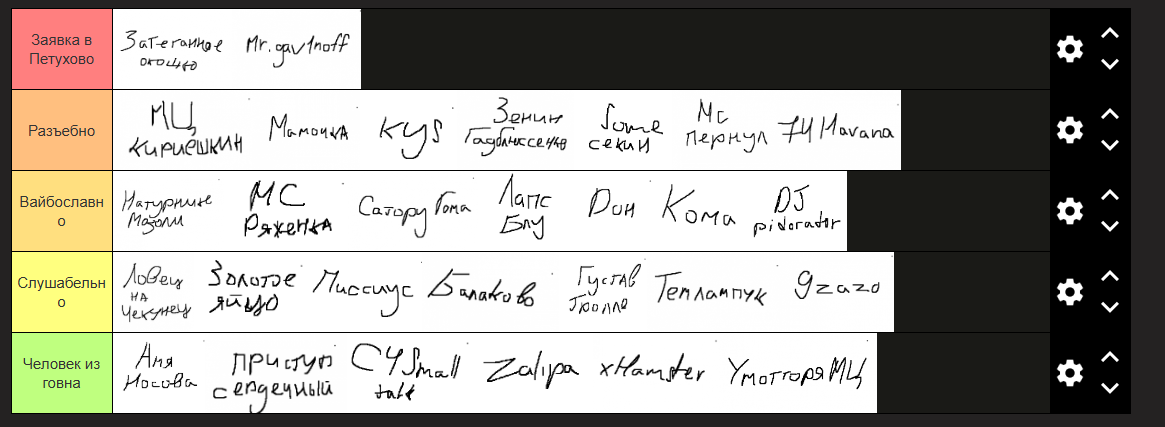 Заявка в
Петухово
Затеганное
окошко
Mr. gav1noff
Разъебно
МЦ
Кириешкин
Мамочка
KYS
Зенин
Гадблюссенко
Some
секии
Мс
пернул
74 Havana
Вайбославн
о
Натурные
Мазоли
МС
Ряженка
Сатору Гома
Лапс
Блу
Дон
Кома
DJ
pidorador
Слушабельн
о
Ловец
на
Чекунец
Золотое
яйцо
Миссиус
Балаково
Густав
Тролле
Теплампук
gzazo
Человек из
говна
Аня
Носова
приступ
сердечный
CY Small
talk
Zalipa
xHamster
Умотгоря МЦ